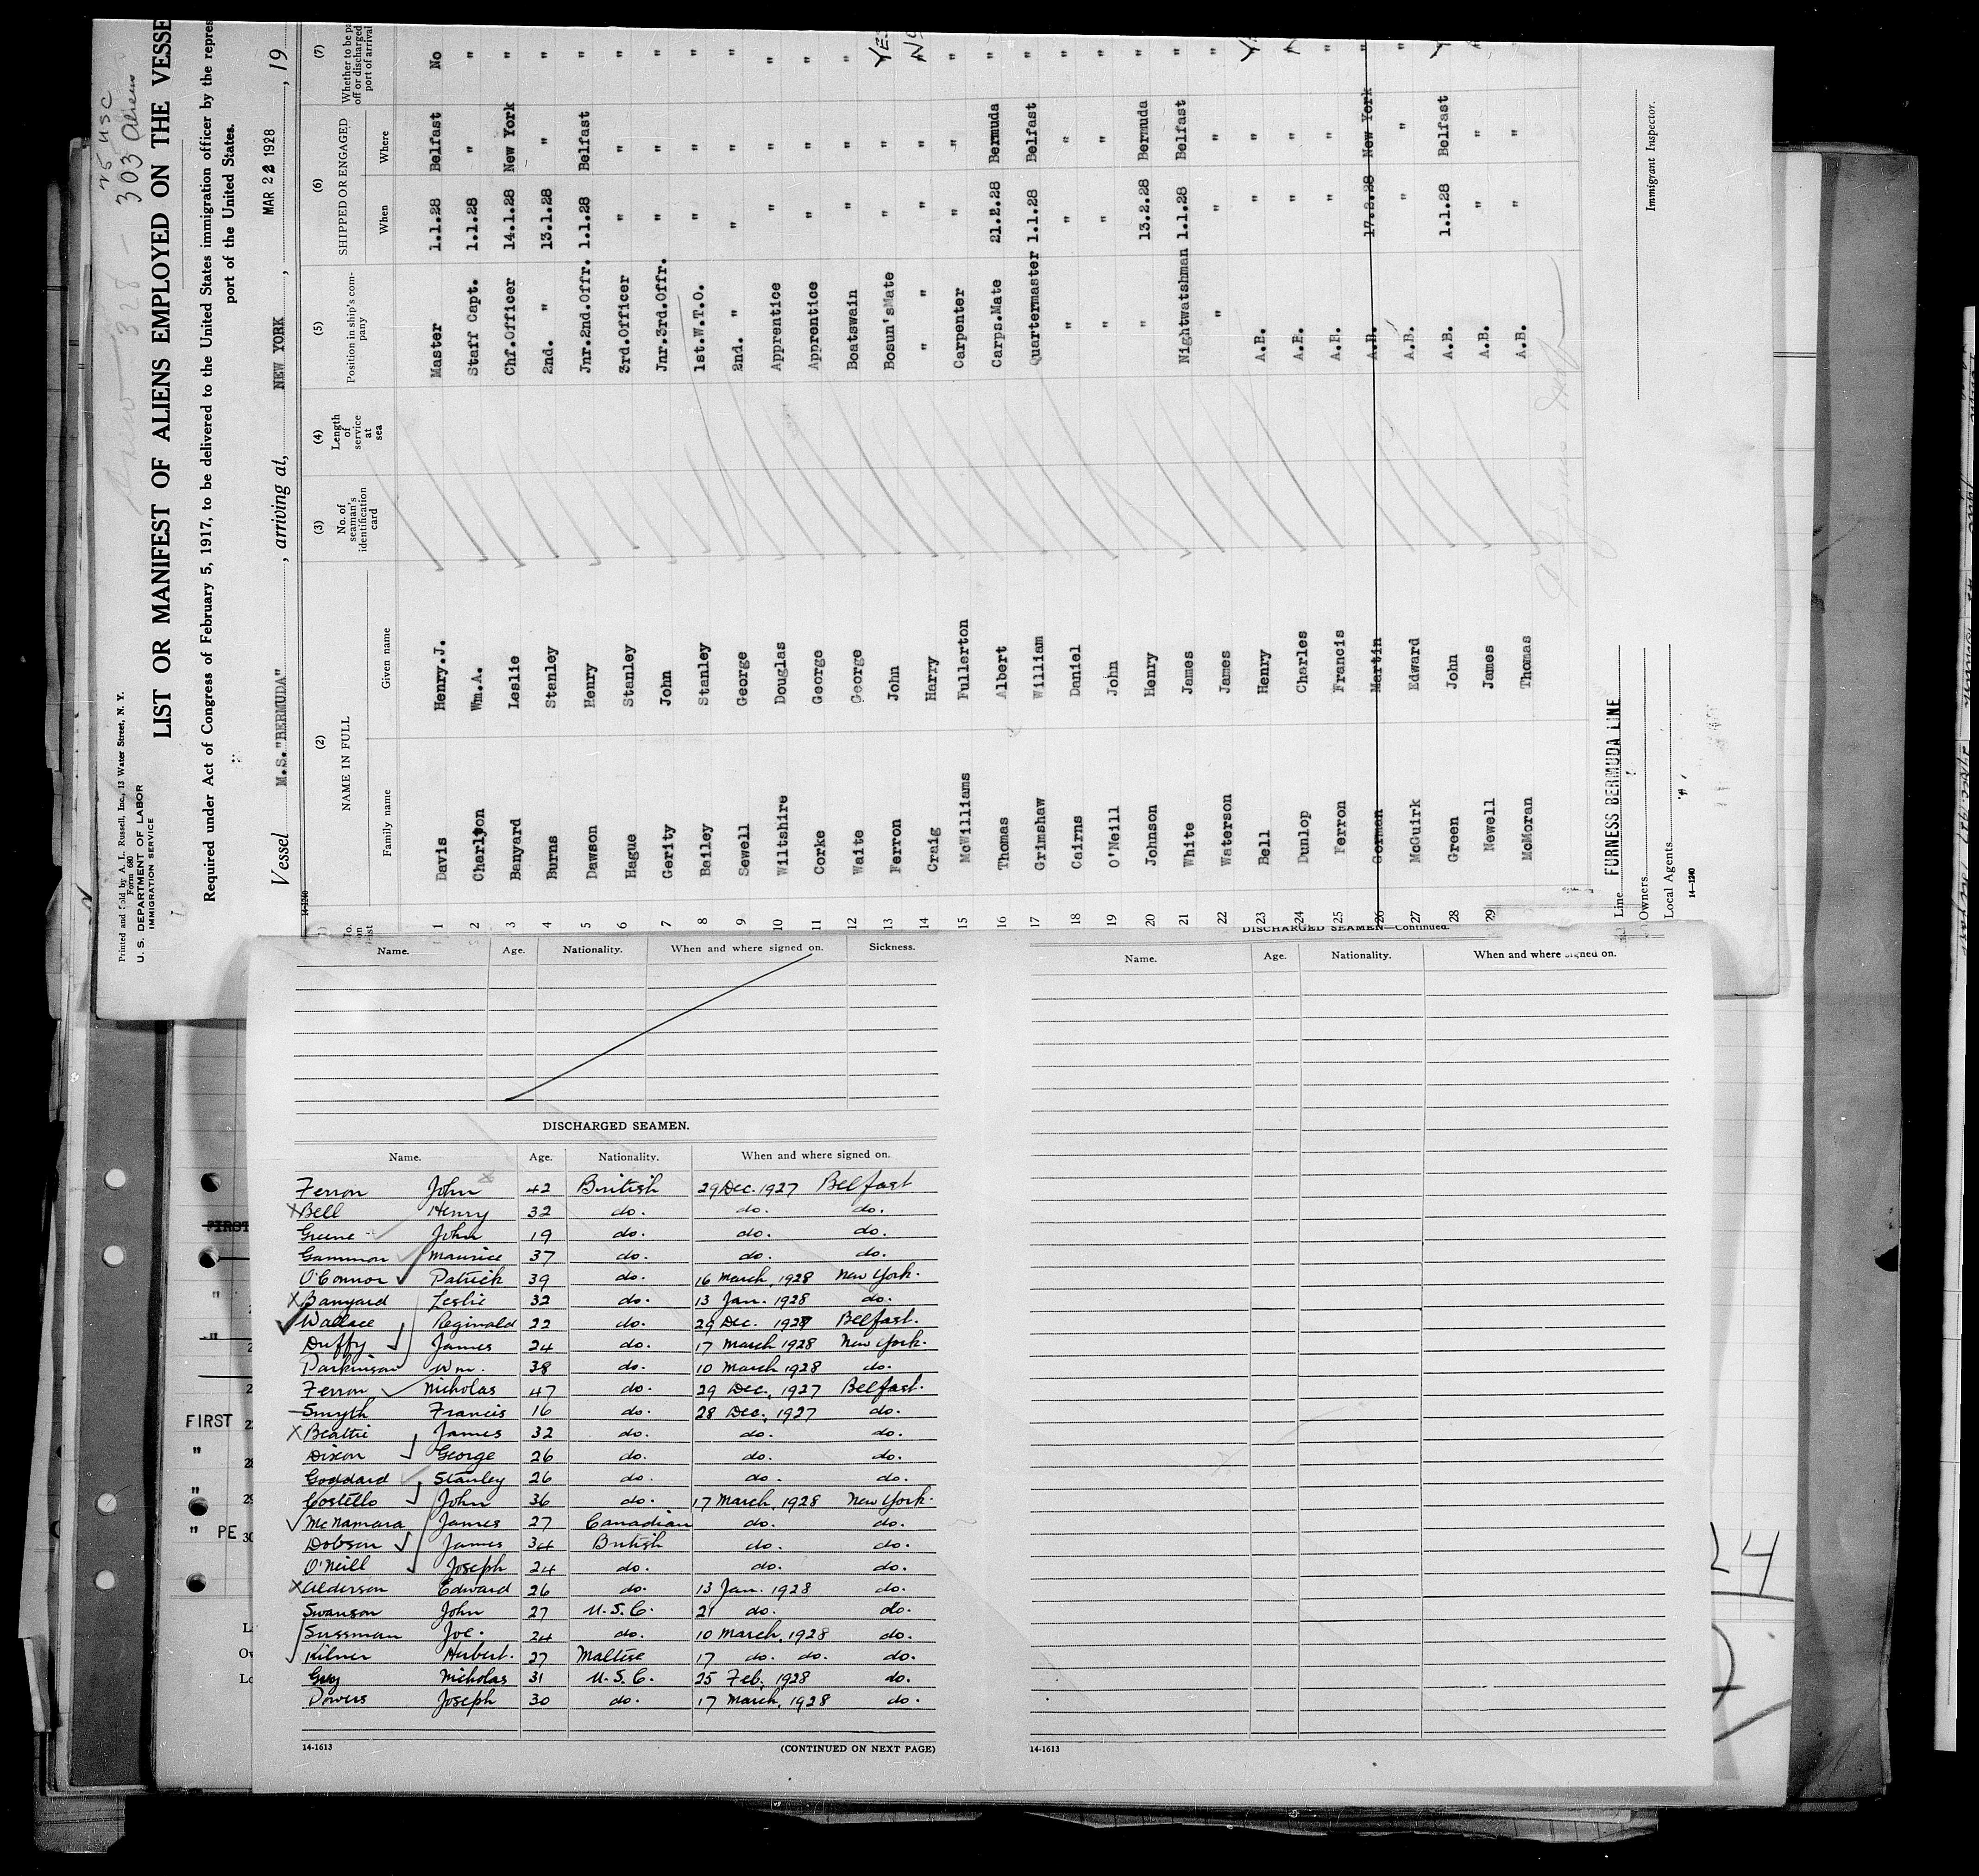 Printed and Sold by A. L. Russell, Inc., 13 Water Street, N. Y.
Form 680
U. S. DEPARTMENT OF LABOR
IMMIGRATION SERVICE
25 USC
328 - 303 Aliens
LIST OR MANIFEST OF ALIENS EMPLOYED ON THE VESSE
Required under Act of Congress of February 5, 1917, to be delivered to the United States immigration officer by the repres
port of the United States.
Vessel M.S."BERMUDA" , arriving at, NEW YORK , MAR 22 1928 , 19
14-1240
(2) (3) (4) (5) (6) (7)
NAME IN FULL No. of seaman's identification card Length of service at sea Position in ship's company SHIPPED OR ENGAGED Whether to be pa off or discharged port of arrival
Family name Given name When Where
1 Davis Henry.J. Master 1.1.28 Belfast No
2 Charlton Wm.A. Staff Capt. 1.1.28 " "
3 Banyard Leslie Chf.Officer 14.1.28 New York "
4 Burns Stanley 2nd. " 13.1.28 " "
5 Dawson Henry Jnr.2nd.Offr. 1.1.28 Belfast "
6 Hague Stanley 3rd.Officer " " "
7 Gerity John Jnr.3rd.Offr. " " "
8 Bailey Stanley 1st.W.T.O. " " "
9 Sewell George 2nd. " " " "
10 Wiltshire Douglas Apprentice " " "
11 Corke George Apprentice " " "
12 Waite George Boatswain " " "
13 Ferron John Bosun'sMate " " YES
14 Craig Harry " " " " No
15 McWilliams Fullerton Carpenter " " "
16 Thomas Albert Carps.Mate 21.2.28 Bermuda "
17 Grimshaw William Quartermaster 1.1.28 Belfast "
18 Cairns Daniel " " " "
19 O'Neill John " " " "
20 Johnson Henry " 13.2.28 Bermuda "
21 White James Nightwatshman 1.1.28 Belfast "
22 Waterson James " " " "
23 Bell Henry A.B. " "
24 Dunlop Charles A.B. " "
25 Ferron Francis A.B. " " "
26 Gorman Martin A.B. 17.3.28 New York "
27 McGuirk Edward A.B. " " "
28 Green John A.B. 1.1.28 Belfast
29 Newell James A.B. " "
McMoran Thomas A.B. " " "
Line FURNESS BERMUDA LINE
Owners
Local Agents
Immigrant Inspector.
14-1240
Name. Age. Nationality. When and where signed on. Sickness.
DISCHARGED SEAMEN.
Name. Age. Nationality. When and where signed on.
Ferron John 42 British 29 Dec. 1927 Belfast
Bell Henry 32 do. do. do.
Greene John 19 do. do. do.
Gammon Maurice 37 do. do. do.
O'Connor Patrick 39 do. 16 March, 1928 New York.
Banyard Leslie 32 do. 13 Jan. 1928 do.
Wallace Reginald 22 do. 29 Dec. 1927 Belfast.
Duffy James 24 do. 17 March 1928 New York.
Parkinson Wm. 38 do. 10 March 1928 do.
Ferron Nicholas 47 do. 29 Dec. 1927 Belfast.
Smyth Francis 16 do. 28 Dec., 1927 do.
Beattie James 32 do. do. do.
Dixon George 26 do. do. do.
Goddard Stanley 26 do. do. do.
Costello John 36 do. 17 March, 1928 New York.
McNamara James 27 Canadian do. do.
Dobson James 34 British do. do.
O'Neill Joseph 24 do. do. do.
Alderson Edward 26 do. 13 Jan. 1928 do.
Swanson John 27 U.S.C. 21 do. do.
Sussman Joe. 24 do. 10 March, 1928 do.
Kilner Herbert. 27 Maltese 17 do. do. do.
Guy Nicholas 31 U.S.C. 25 Feb. 1928 do.
Powers Joseph 30 do. 17 March, 1928 do.
14-1613 (CONTINUED ON NEXT PAGE)
DISCHARGED SEAMEN—Continued.
Name. Age. Nationality. When and where signed on.
14-1613
FIRST
"
"
FIRST
"
"
" PE
28
29
30
24